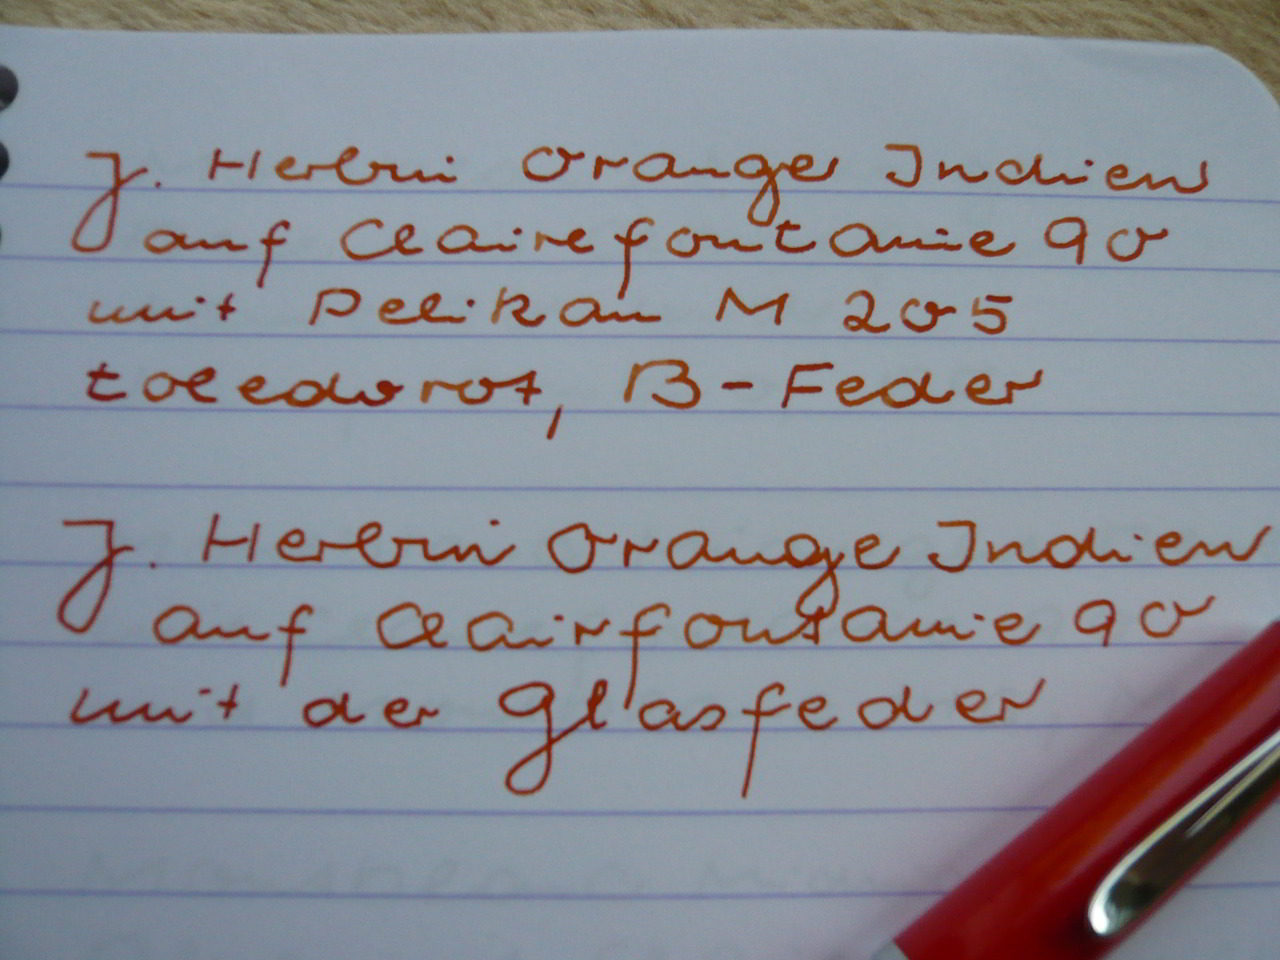 J. Herbin Orange Indien
auf Clairefontaine 90
mit Pelikan M 205
toledorot, B-Feder
J. Herbin Orange Indien
auf Clairfontaine 90
mit der Glasfeder